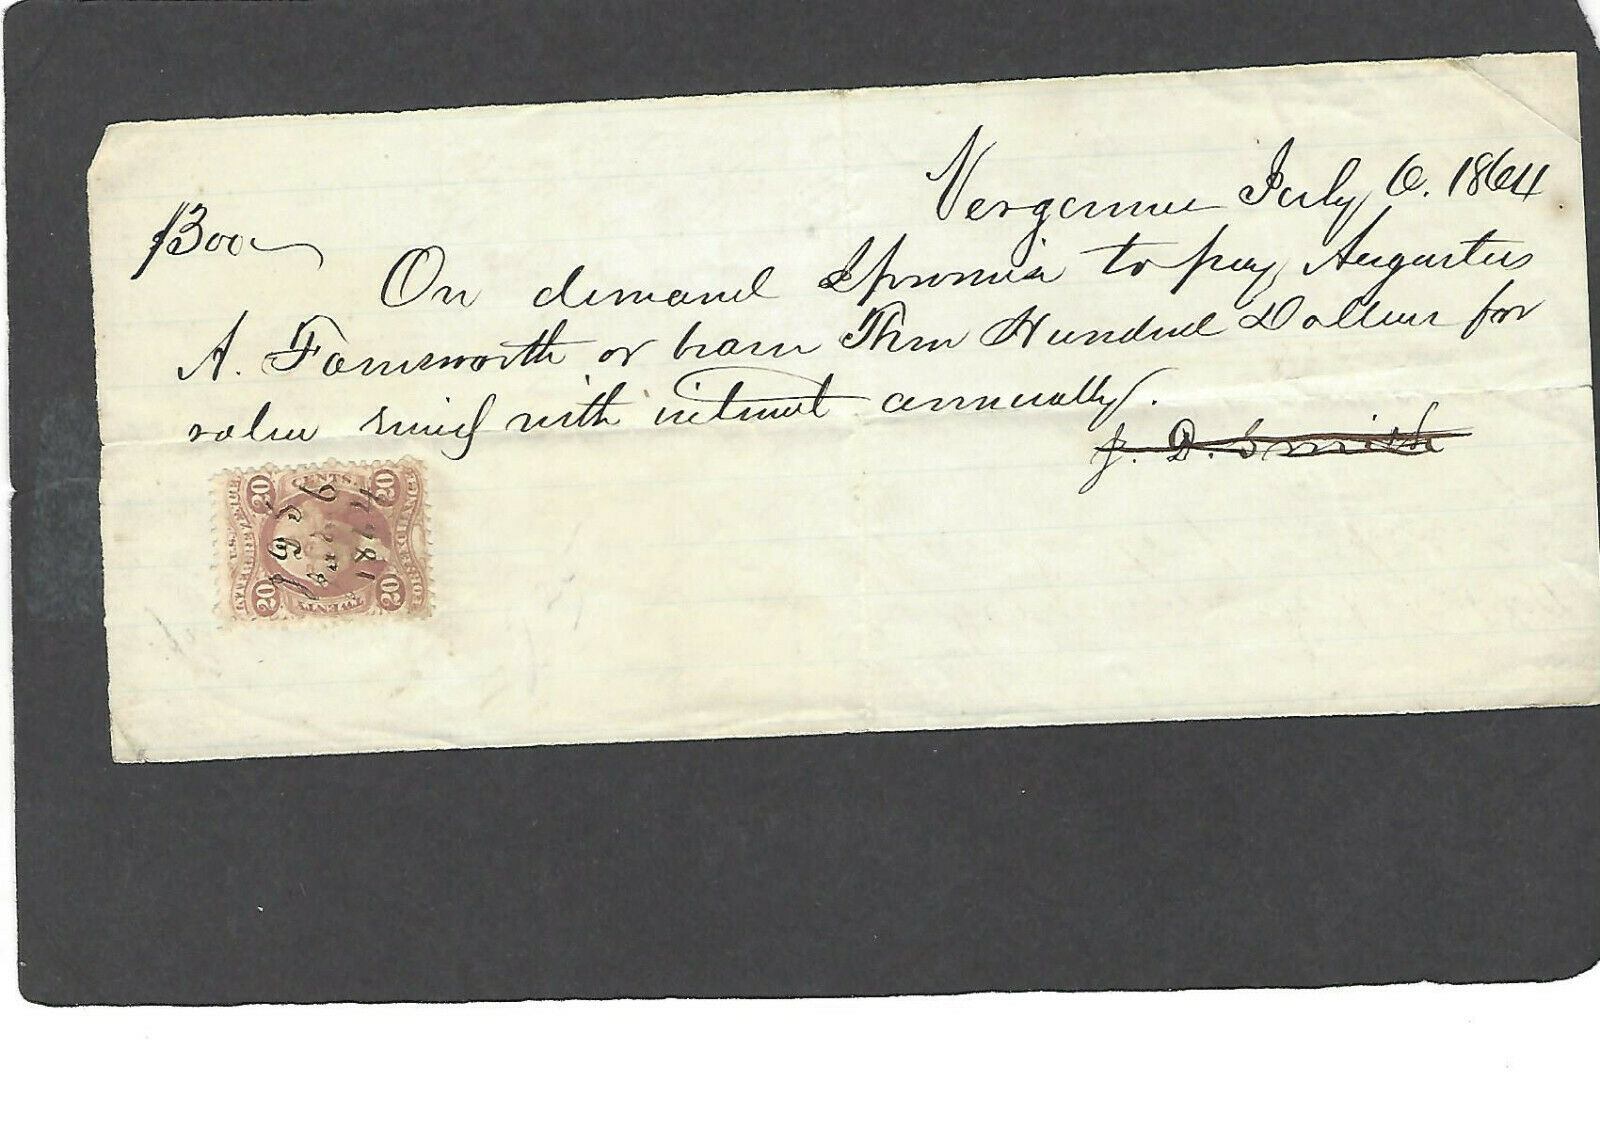 Vergennes July 6. 1864
$300
On demand I promis to pay Augustus
A. Farnsworth or bearer Three Hundred Dollars for
value recieved with interest annually.
J. D. Smith
U.S. INTER. REVENUE
20 CENTS. 20
J D S
July 6
1864
20 TWENTY 20
FOREIGN EXCHANGE